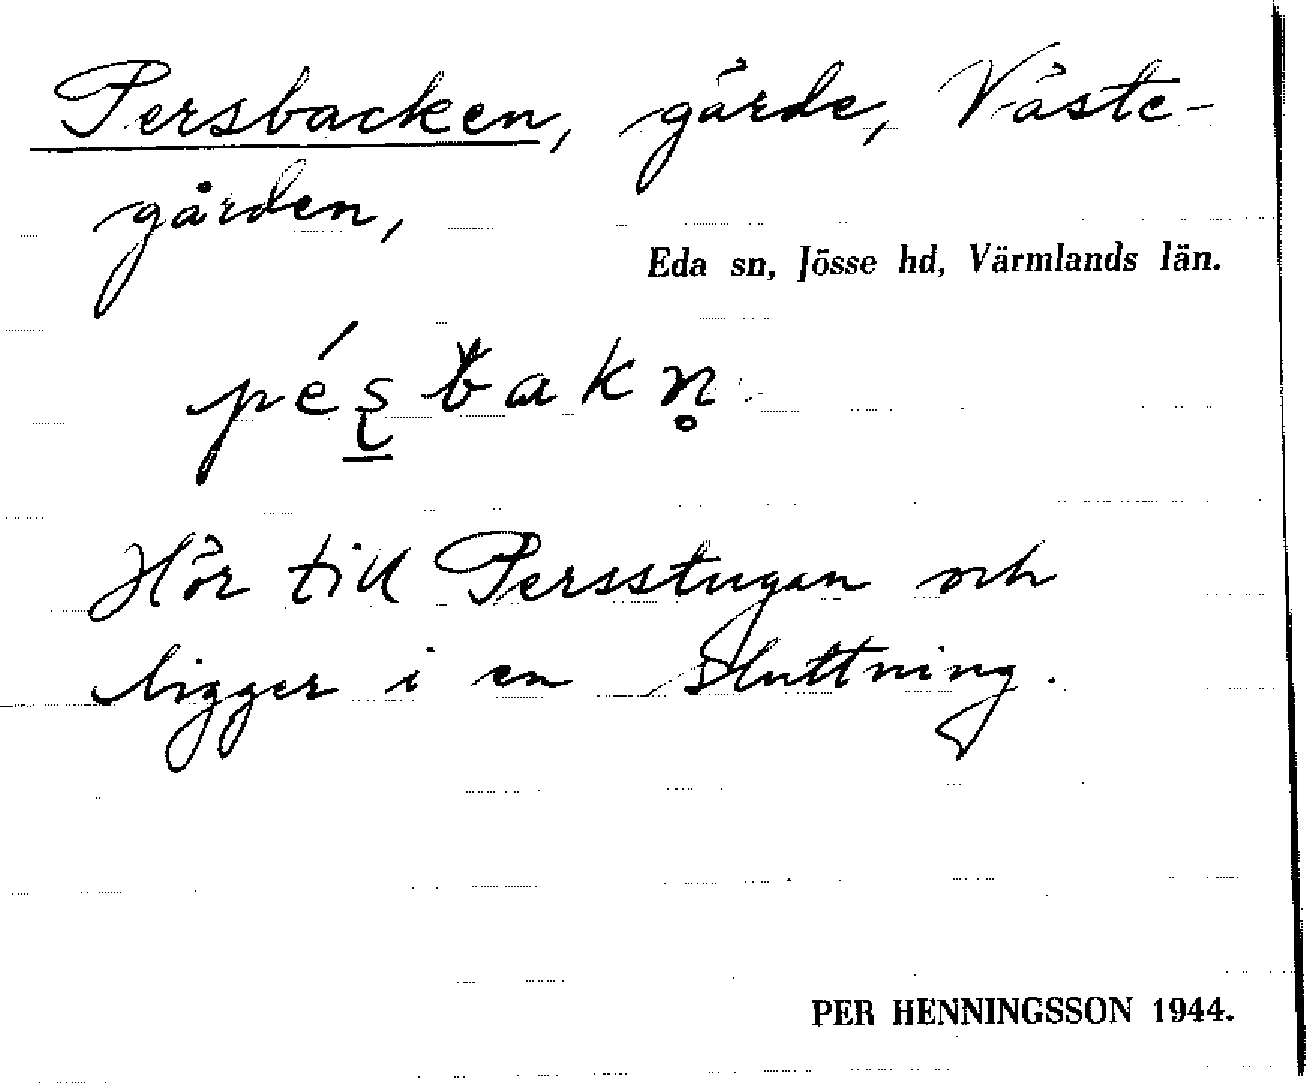 Persbacken, gärde, Väste-
gården,
Eda sn, Jösse hd, Värmlands län.
pe´ʂbakn̥
Hör till Persstugan och
ligger i en sluttning.
PER HENNINGSSON 1944.